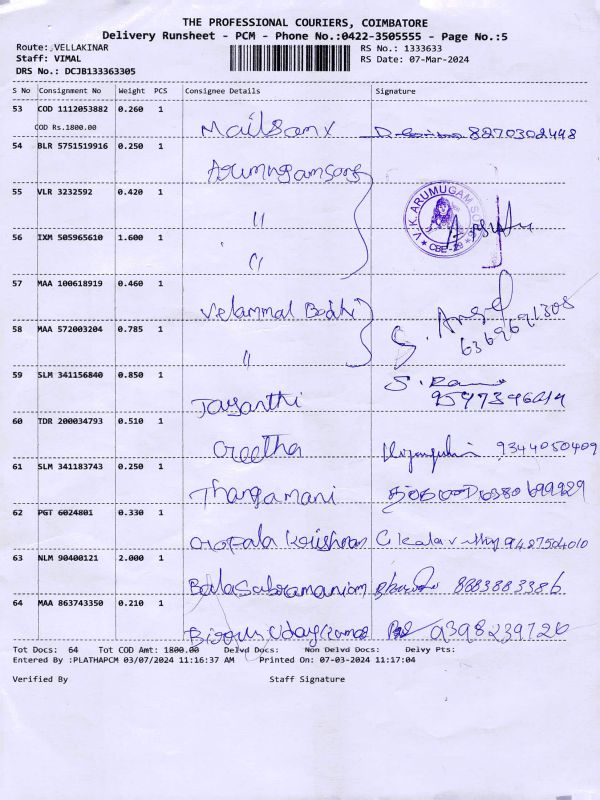 THE PROFESSIONAL COURIERS, COIMBATORE
Delivery Runsheet - PCM - Phone No.:0422-3505555 - Page No.:5
Route: VELLAKINAR RS No.: 1333633
Staff: VIMAL RS Date: 07-Mar-2024
DRS No.: DCJB133363305
S No Consignment No Weight PCS Consignee Details Signature
53 COD 1112053882 0.260 1
COD Rs.1800.00 8270302448
54 BLR 5751519916 0.250 1
55 VLR 3232592 0.420 1 "
V.K. ARUMUGAM
CBE-29
56 IXM 505965610 1.600 1 "
57 MAA 100618919 0.460 1
Velammal Bodhi
58 MAA 572003204 0.785 1 "
6369691308
59 SLM 341156840 0.850 1
Jayanthi
60 TDR 200034793 0.510 1
Geetha 9344050409
61 SLM 341183743 0.250 1
Thangamani
62 PGT 6024801 0.330 1
Gopala Krishnan 9487504010
63 NLM 90400121 2.000 1
Balasubramaniam 8883883386
64 MAA 863743350 0.210 1
9398239726
Tot Docs: 64 Tot COD Amt: 1800.00 Delvd Docs: Non Delvd Docs: Delvy Pts:
Entered By :PLATHAPCM 03/07/2024 11:16:37 AM Printed On: 07-03-2024 11:17:04
Verified By Staff Signature